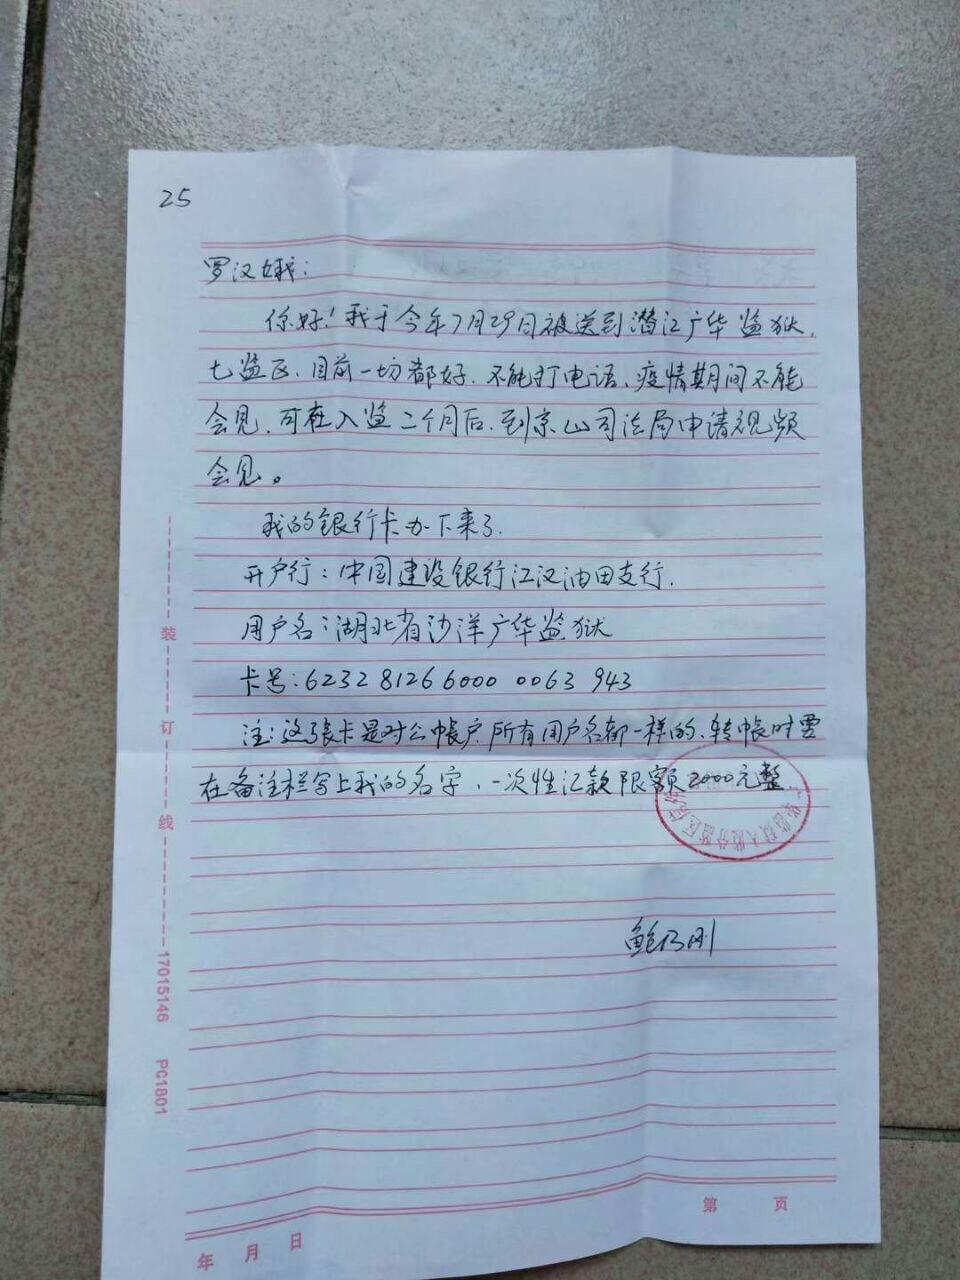 25
罗汉娥：
你好！我于今年7月29日被送到潜江广华监狱，
七监区，目前一切都好，不能打电话，疫情期间不能
会见，可在入监二个月后，到京山司法局申请视频
会见。
我的银行卡办下来了，
开户行：中国建设银行江汉油田支行，
用户名：湖北省沙洋广华监狱
卡号：6232 8126 6000 0063 943
注：这张卡是对公帐户，所有用户名都一样的，转帐时要
在备注栏写上我的名字，一次性汇款限额2000元整，
鲍乃刚
装订线
17015146 PC1801
第 页
年 月 日